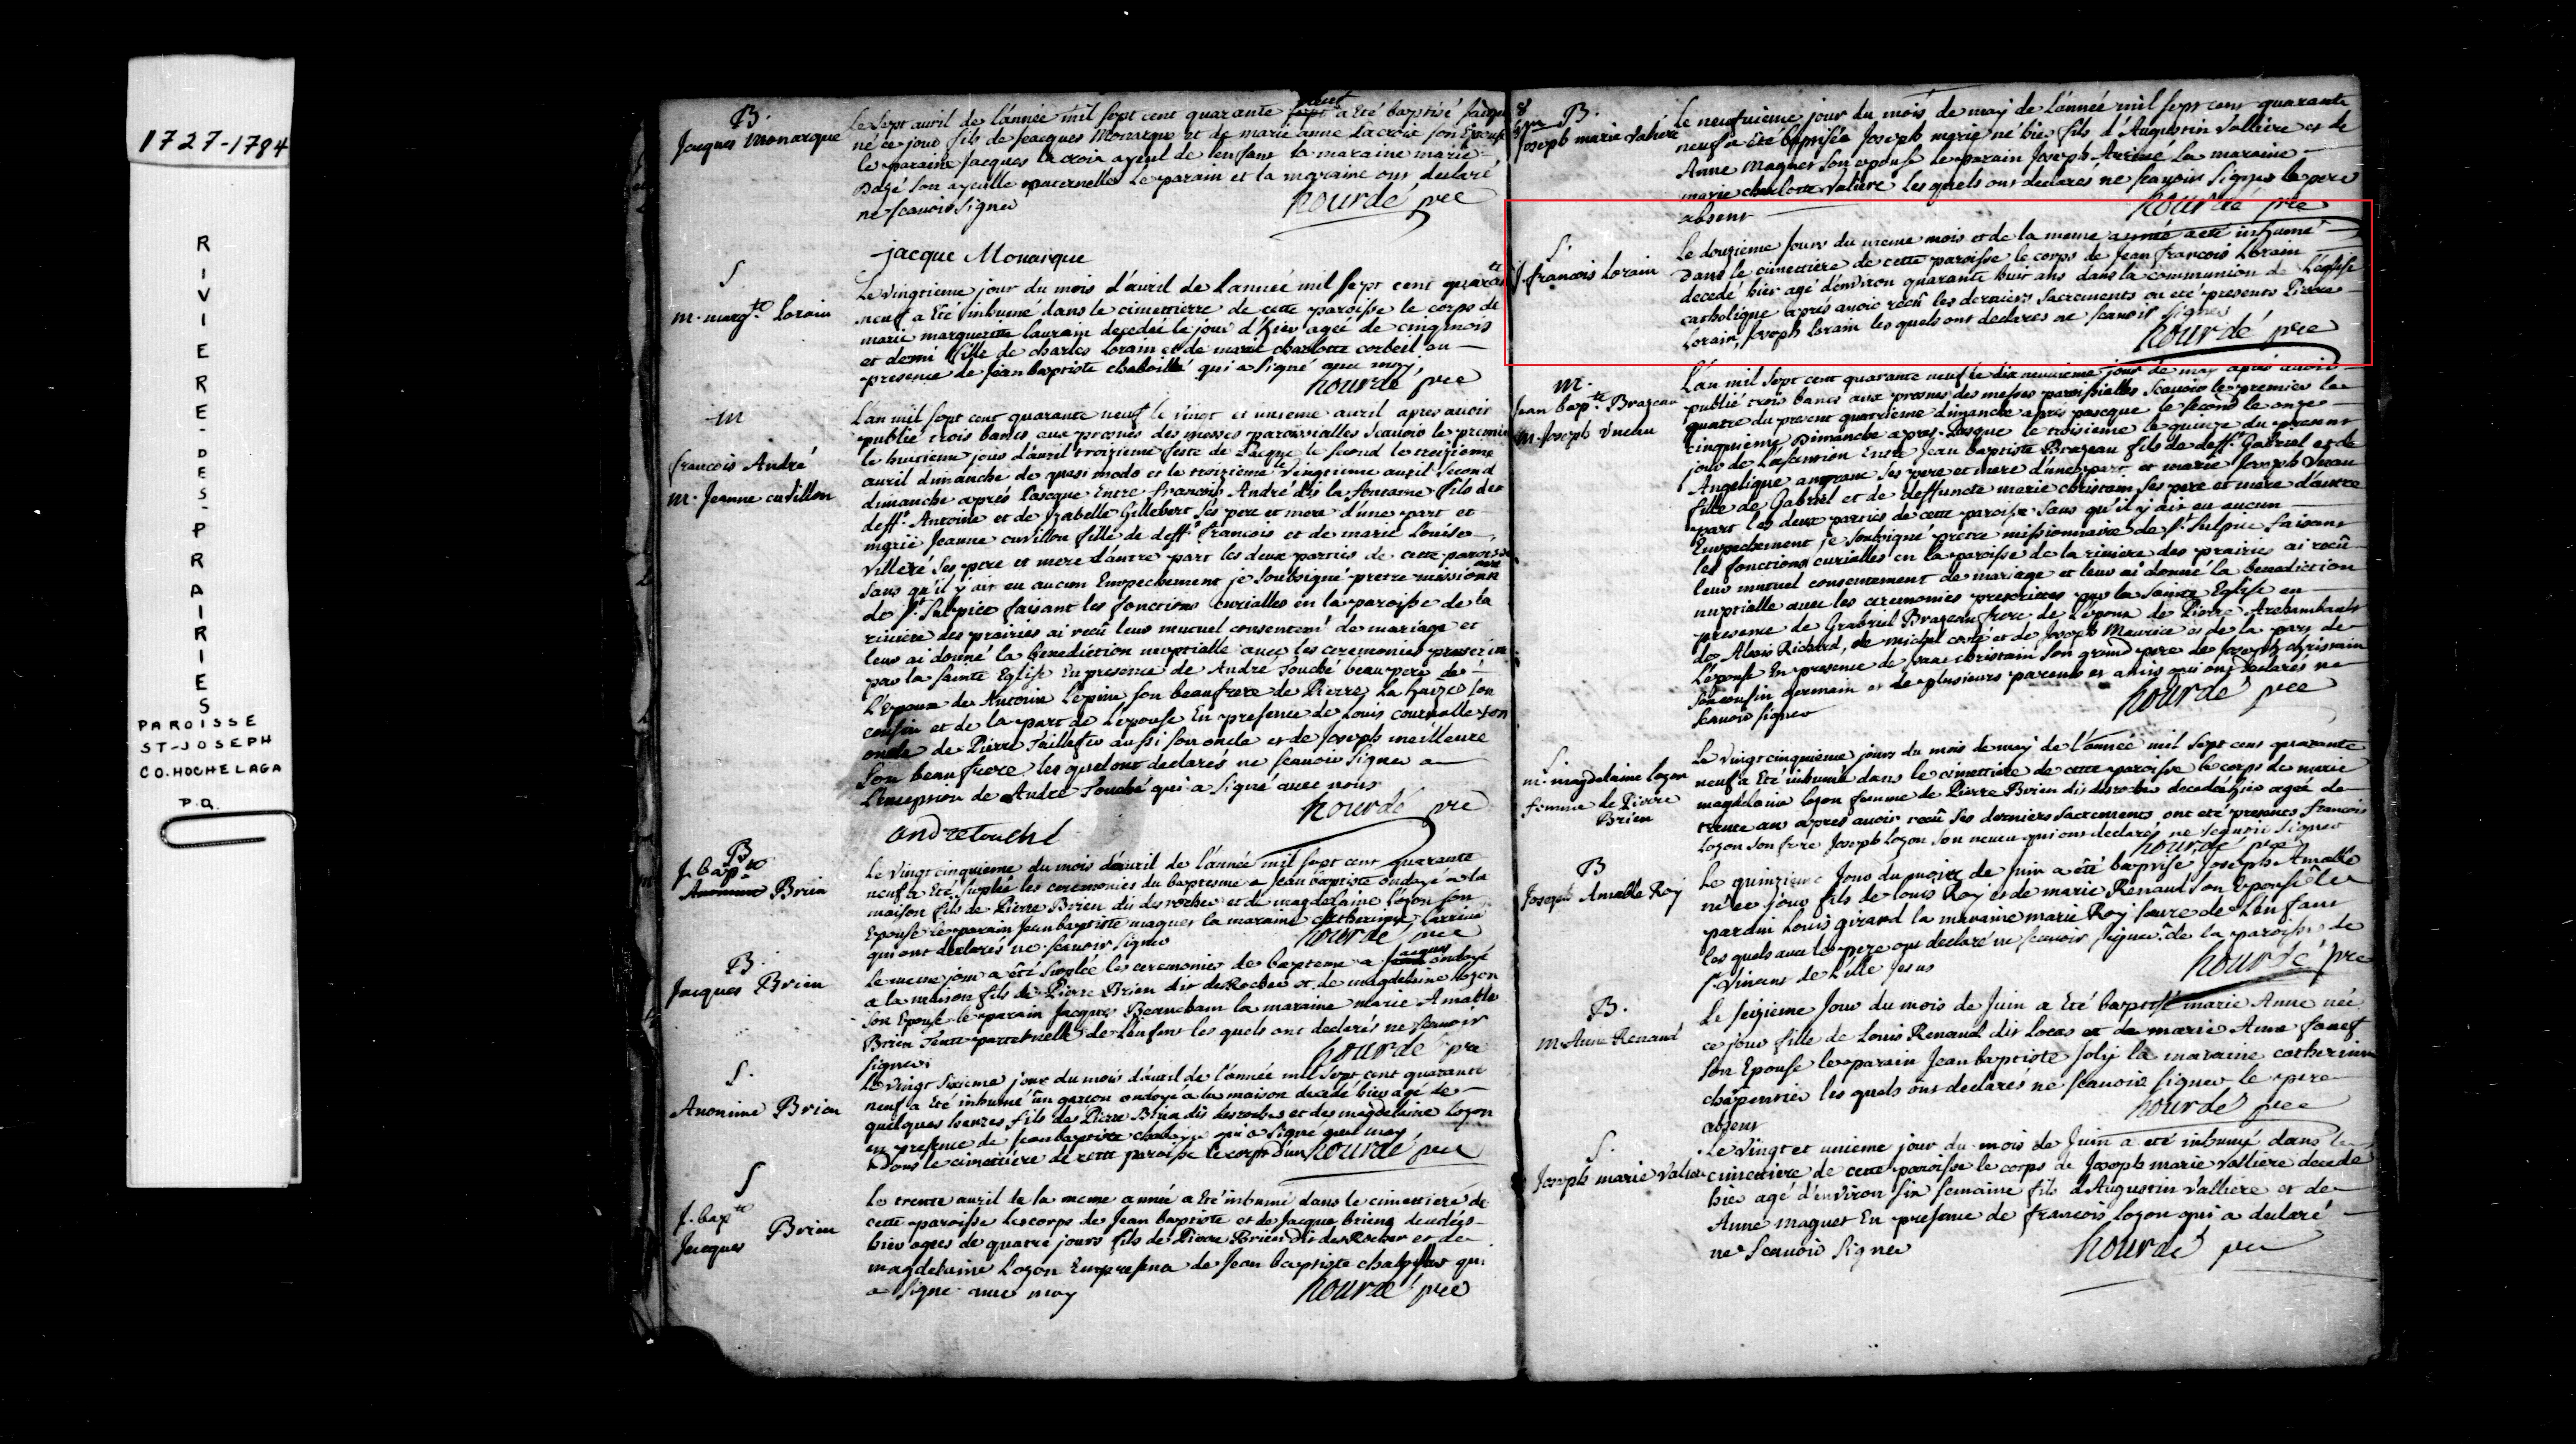 1727-1784
RIVIERE-DES-PRAIRIES
PAROISSE
ST-JOSEPH
CO. HOCHELAGA
P.Q.
B.
Jacques Monarque
Le sept avril de l'année mil sept cent quarante neuf a Eté baptisé Jacques
né ce jour fils de Jeacques Monarque et de marie anne Lacroix son Epouse
le paraine Jacques Lacroix ayeul de l'enfant la maraine marie
Bazé son ayeulle maternelle Le parain et la maraine ont declaré
ne scavoir signer
hourdé pre
jacque Monarque
S
m. margte Lorain
Le vingtieme jour du mois d'avril de l'année mil sept cent quarate
neuf a Eté inhumé dans le cimettierre de cette paroisse le corps de
marie marguerite laurain decedée le jour d'hier ageé de cinq mois
et demi fille de charles Lorain et de marie charlotte corbeil en
presence de Jean baptiste chaboillé qui a signé avec moy
hourdé pre
m
francois André
m. Jeanne cuvillon
L'an mil sept cent quarante neuf le vingt et unieme avril apres avoir
publié trois bancs aux prones des messes paroissialles scavoir le premier
le huitieme jour d'avril troizieme feste de Pacque le second le treizieme
avril dimanche de quasi modo et le troizieme le vingtieme avril second
dimanche aprés Pascque Entre francois André dis la fontaine fils de
deft. Antoine et de Izabelle Gillebert ses pere et mere d'une part et
marie Jeanne cuvillon fille de deft. francois et de marie Louise
Villeré ses pere et mere d'autre part les deux parties de cette paroisse
sans qu'il y air eu aucun Empechement je soubsigné pretre missionaire
de St. Sulpice faisant les fonctions curialles en la paroisse de la
riviere des prairies ai recû leur mutuel consentemt de mariage et
leur ai donné la benediction nuptialle avec les ceremonies prescrites
par la sainte Eglise En presence de André Touché beau pere de
L'Epoux de Antoine Lepine son beaufrere de Pierre La haize son
cousin et de la part de Lepouse En presence de Louis courvalle son
oncle de Pierre Taillefer aussi son oncle et de Joseph meilleure
son beau frere les quel ont declarés ne scavoir signer a
L'Exception de André Touché qui a signé avec nous
hourdé pre
andre touché
B
J. bapte
Brien
Le vingt cinquieme du mois d'avril de l'année mil sept cent quarante
neuf a Eté suplée les ceremonies du baptesme a Jean baptiste ondoyé a la
maison fils de Pierre Brien dis desrocher et de magdelaine Lozon son
Epouse le parain Jean baptiste maguet la maraine catherinne
qui ont declarés ne scavoir signer
hourdé pre
B.
Jacques Brien
Le meme jour a êté suplée les ceremonies de bapteme a Jacques ondoyé
a la maison fils de Pierre Brien dis desRocher et de magdelaine Lozon
son Epouse le parain Jacques Beaucham la maraine marie Amable
Brien Tente paternelle de L'enfant les quels ont declarés ne scavoir
signer
hourdé pre
S.
Anonime Brien
Le vingt sixieme jour du mois d'avril de l'année mil sept cent quarante
neuf a Eté inhumé ûn garcon ondoyé a la maison decedé hier agé de
quelques heures fils de Pierre Brien dis desrocher et des magdelaine Lozon
en presence de Jean baptiste qui a signé avec moy
dans le cimettiere de cette paroisse le corps d'un
hourdé pre
S
J. bapte
Jacques
Brien
Le trente avril de la meme année a Eté inhumé dans le cimettiere de
cette paroisse les corps de Jean baptiste et de Jacque briens decedés
hier agées de quatre jours fils de Pierre Brien dis desRocher et de
magdelaine Lozon En presence de Jean baptiste qui
a signé avec moy
hourdé pre
8
B.
Joseph marie Valiere
Le neufvieme jour du mois de may de L'année mil sept cent quarante
neuf a Eté Baptisée Joseph marie né hier fils d'Augustin Valliere et de
Anne Maguet son epouse le parain Joseph la maraine
marie charlotte Valiere les quels ont declarés ne scavoir signer le pere
absent
hourdé pre
S.
J. francois Lorain
Le douzieme jour du meme mois et de la meme année a eté inhumé
dans le cimettiere de cette paroisse le corps de Jean francois Lorain
decedé hier agé d'environ quarante huit ans dans la communion de L'eglise
catholique aprés avoir recû les derniers sacrements on eté presents Pierre
Lorain, Joseph Lorain les quels ont declares ne scavoir signer
hourdé pre
m.
Jean bapte Brazeau
m. Joseph
L'an mil sept cent quarante neuf le dix neuvieme jour de may aprés avoir
publié trois bancs aux prosnes des messes paroissialles scavoir le premier le
quatre du present quatrieme dimanche aprés pascque le second le onze
cinquieme Dimanche apres Pasque le troisieme le quinze du present
jour de L'ascension Entre Jean baptiste Brazeau fils de deft. Gabriel et de
Angelique ses pere et mere d'une part et marie Joseph
fille de Gabriel et de deffuncte marie christain ses pere et mere d'autre
part les deux parties de cette paroisse sans qu'il y air eu aucun
Empechement je soubsigné pretre missionnaire de St. Sulpice faisant
les fonctions curialles en la paroisse de la riviere des prairies ai recû
leur mutuel consentement de mariage et leur ai donné la benediction
nuptialle avec les ceremonies prescrites par la sainte Eglise en
presence de Grabriel Brazeau frere de L'époux de Pierre Archambault
de Alexis Richard, de michel et de Joseph Maurice et de la part de
L'epouse En presence de christain son grand pere de Joseph christain
son cousin germain et de plusieurs parents et amis qui ont declarés ne
scavoir signer
hourdé pre
S
m. magdelaine Lozon
femme de Pierre
Brien
Le vingt cinquieme jours du mois de may de l'année mil sept cent quarante
neuf a Eté inhumée dans le cimettiere de cette paroisse le corps de marie
magdelaine Lozon femme de Pierre Brien dis desrocher decedée hier ageé de
trente ans apres avoir recû ses derniers sacrements ont eté presents francois
Lozon son frere Joseph Lozon son neveu qui ont declarés ne scavoir signer
hourdé pre
B
Joseph Amable Roy
Le quinzieme Jour du mois de Juin a êté baptisé Joseph Amable
né ce jour fils de Louis Roy et de marie Renaud son Epouse le
parain Louis girard la maraine marie Roy soeure de L'enfant
les quels avec le pere ont declaré ne scavoir signer de la paroisse de
St. Vincent de L'ille Jesus
hourdé pre
B.
m. Anne Renaud
Le seizieme Jour du mois de Juin a Eté baptisé marie Anne née
ce jour fille de Louis Renaud dis Locas et de marie Anne
son Epouse le parain Jean baptiste Joly la maraine catherinne
chapentier les quels ont declarés ne scavoir signer le pere
absent
hourdé pre
S.
Joseph marie Valiere
Le vingt et unieme jour du mois de Juin a eté inhumé dans le
cimettiere de cette paroisse le corps de Joseph marie Valliere decede
hier agé d'environ six semaine fils d'Augustin Valliere et de
Anne maguet En presence de francois Lozon qui a declaré
ne scavoir signer
hourdé pre